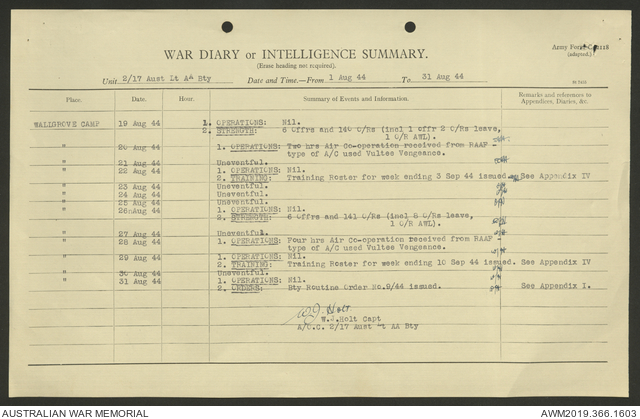 Army Form C 2118
(adapted.)
WAR DIARY or INTELLIGENCE SUMMARY.
(Erase heading not required).
Unit 2/17 Aust Lt AA Bty Date and Time.—From 1 Aug 44 To 31 Aug 44
Place. Date. Hour. Summary of Events and Information. Remarks and references to Appendices, Diaries, &c.
WALLGROVE CAMP 19 Aug 44 1. OPERATIONS: Nil.
2. STRENGTH: 6 Offrs and 140 O/Rs (incl 1 offr 2 O/Rs leave,
1 O/R AWL).
" 20 Aug 44 1. OPERATIONS: Two hrs Air Co-operation received from RAAF -
type of A/C used Vultee Vengeance.
" 21 Aug 44 Uneventful.
" 22 Aug 44 1. OPERATIONS: Nil.
2. TRAINING: Training Roster for week ending 3 Sep 44 issued. See Appendix IV
" 23 Aug 44 Uneventful.
" 24 Aug 44 Uneventful.
" 25 Aug 44 Uneventful.
" 26 Aug 44 1. OPERATIONS: Nil.
2. STRENGTH: 6 Offrs and 141 O/Rs (incl 8 O/Rs leave,
1 O/R AWL).
" 27 Aug 44 Uneventful.
" 28 Aug 44 1. OPERATIONS: Four hrs Air Co-operation received from RAAF -
type of A/C used Vultee Vengeance.
" 29 Aug 44 1. OPERATIONS: Nil.
2. TRAINING: Training Roster for week ending 10 Sep 44 issued. See Appendix IV
" 30 Aug 44 Uneventful.
" 31 Aug 44 1. OPERATIONS: Nil.
2. ORDERS: Bty Routine Order No.9/44 issued. See Appendix I.
WJ. Holt.
W.J.Holt Capt
A/O.C. 2/17 Aust Lt AA Bty
AUSTRALIAN WAR MEMORIAL AWM2019.366.1603